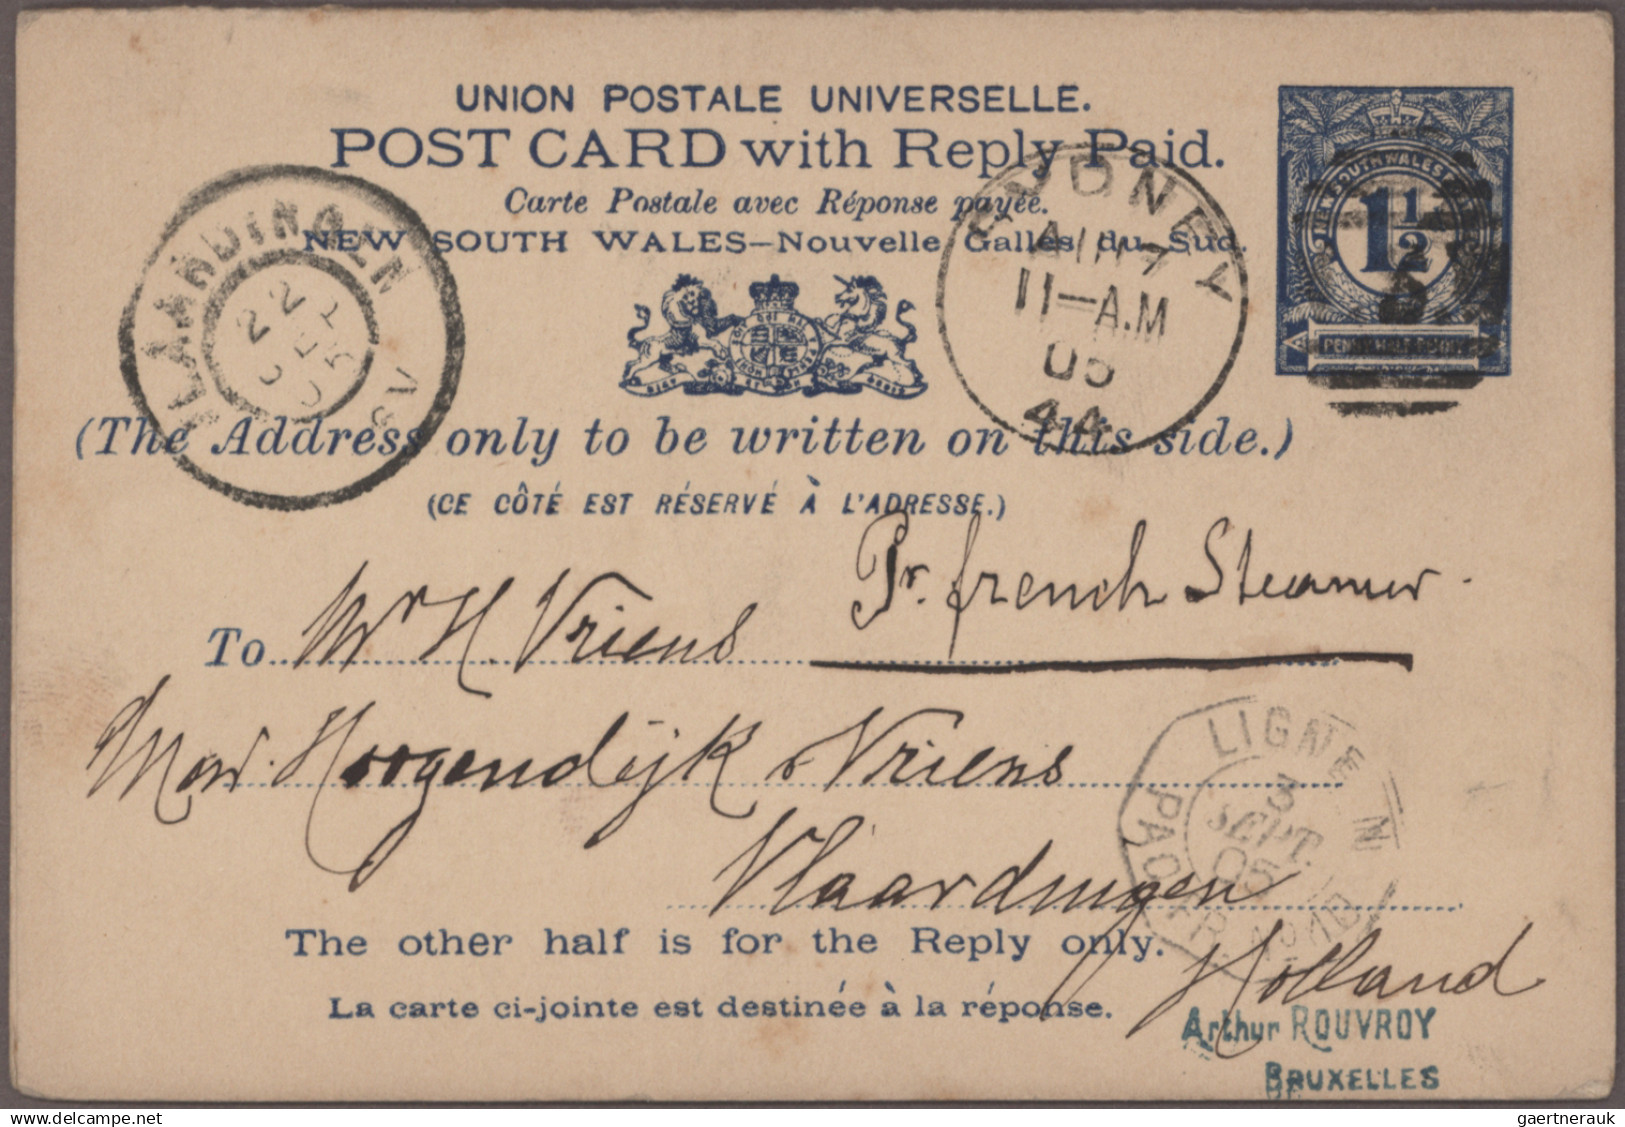 UNION POSTALE UNIVERSELLE.
POST CARD with Reply Paid.
Carte Postale avec Réponse payée.
NEW SOUTH WALES—Nouvelle Galles du Sud.
1½
SYDNEY
11—A.M
05
44
VLAARDINGEN
22
(The Address only to be written on this side.)
(CE CÔTÉ EST RÉSERVÉ À L'ADRESSE.)
Pr. french Steamer.
To Mr H. Vriens
Hoogendijk & Vriens
Vlaardingen
Holland
LIGNE N
3
SEPT.
05
PAQ FR.
The other half is for the Reply only.
La carte ci-jointe est destinée à la réponse.
Arthur ROUVROY
BRUXELLES
gaertnerauk